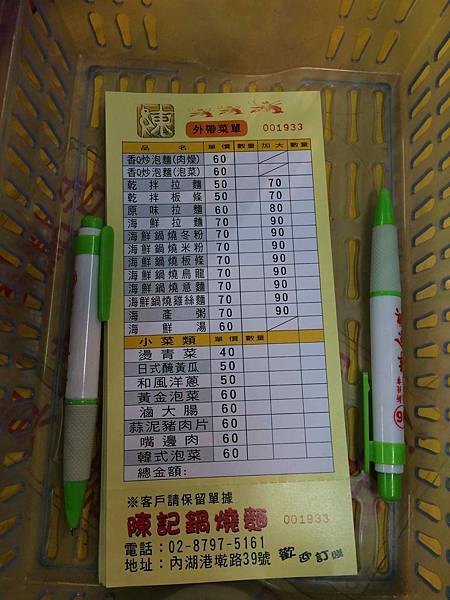 陳 外帶菜單 001933
品 名 單價 數量 加大 數量
香Q炒泡麵(肉燥) 60
香Q炒泡麵(泡菜) 60
乾拌拉麵 50 70
乾拌板條 50 70
原味拉麵 60 80
海鮮拉麵 70 90
海鮮鍋燒冬粉 70 90
海鮮鍋燒米粉 70 90
海鮮鍋燒板條 70 90
海鮮鍋燒烏龍 70 90
海鮮鍋燒意麵 70 90
海鮮鍋燒雞絲麵 70 90
海產粥 70 90
海鮮湯 60
小菜類 單價 數量
燙青菜 40
日式醜黃瓜 50
和風洋蔥 50
黃金泡菜 60
滷大腸 60
蒜泥豬肉片 60
嘴邊肉 60
韓式泡菜 60
總金額:
※客戶請保留單據
陳記鍋燒麵 001933
電話:02-8797-5161
地址:內湖港墘路39號 歡迎訂購